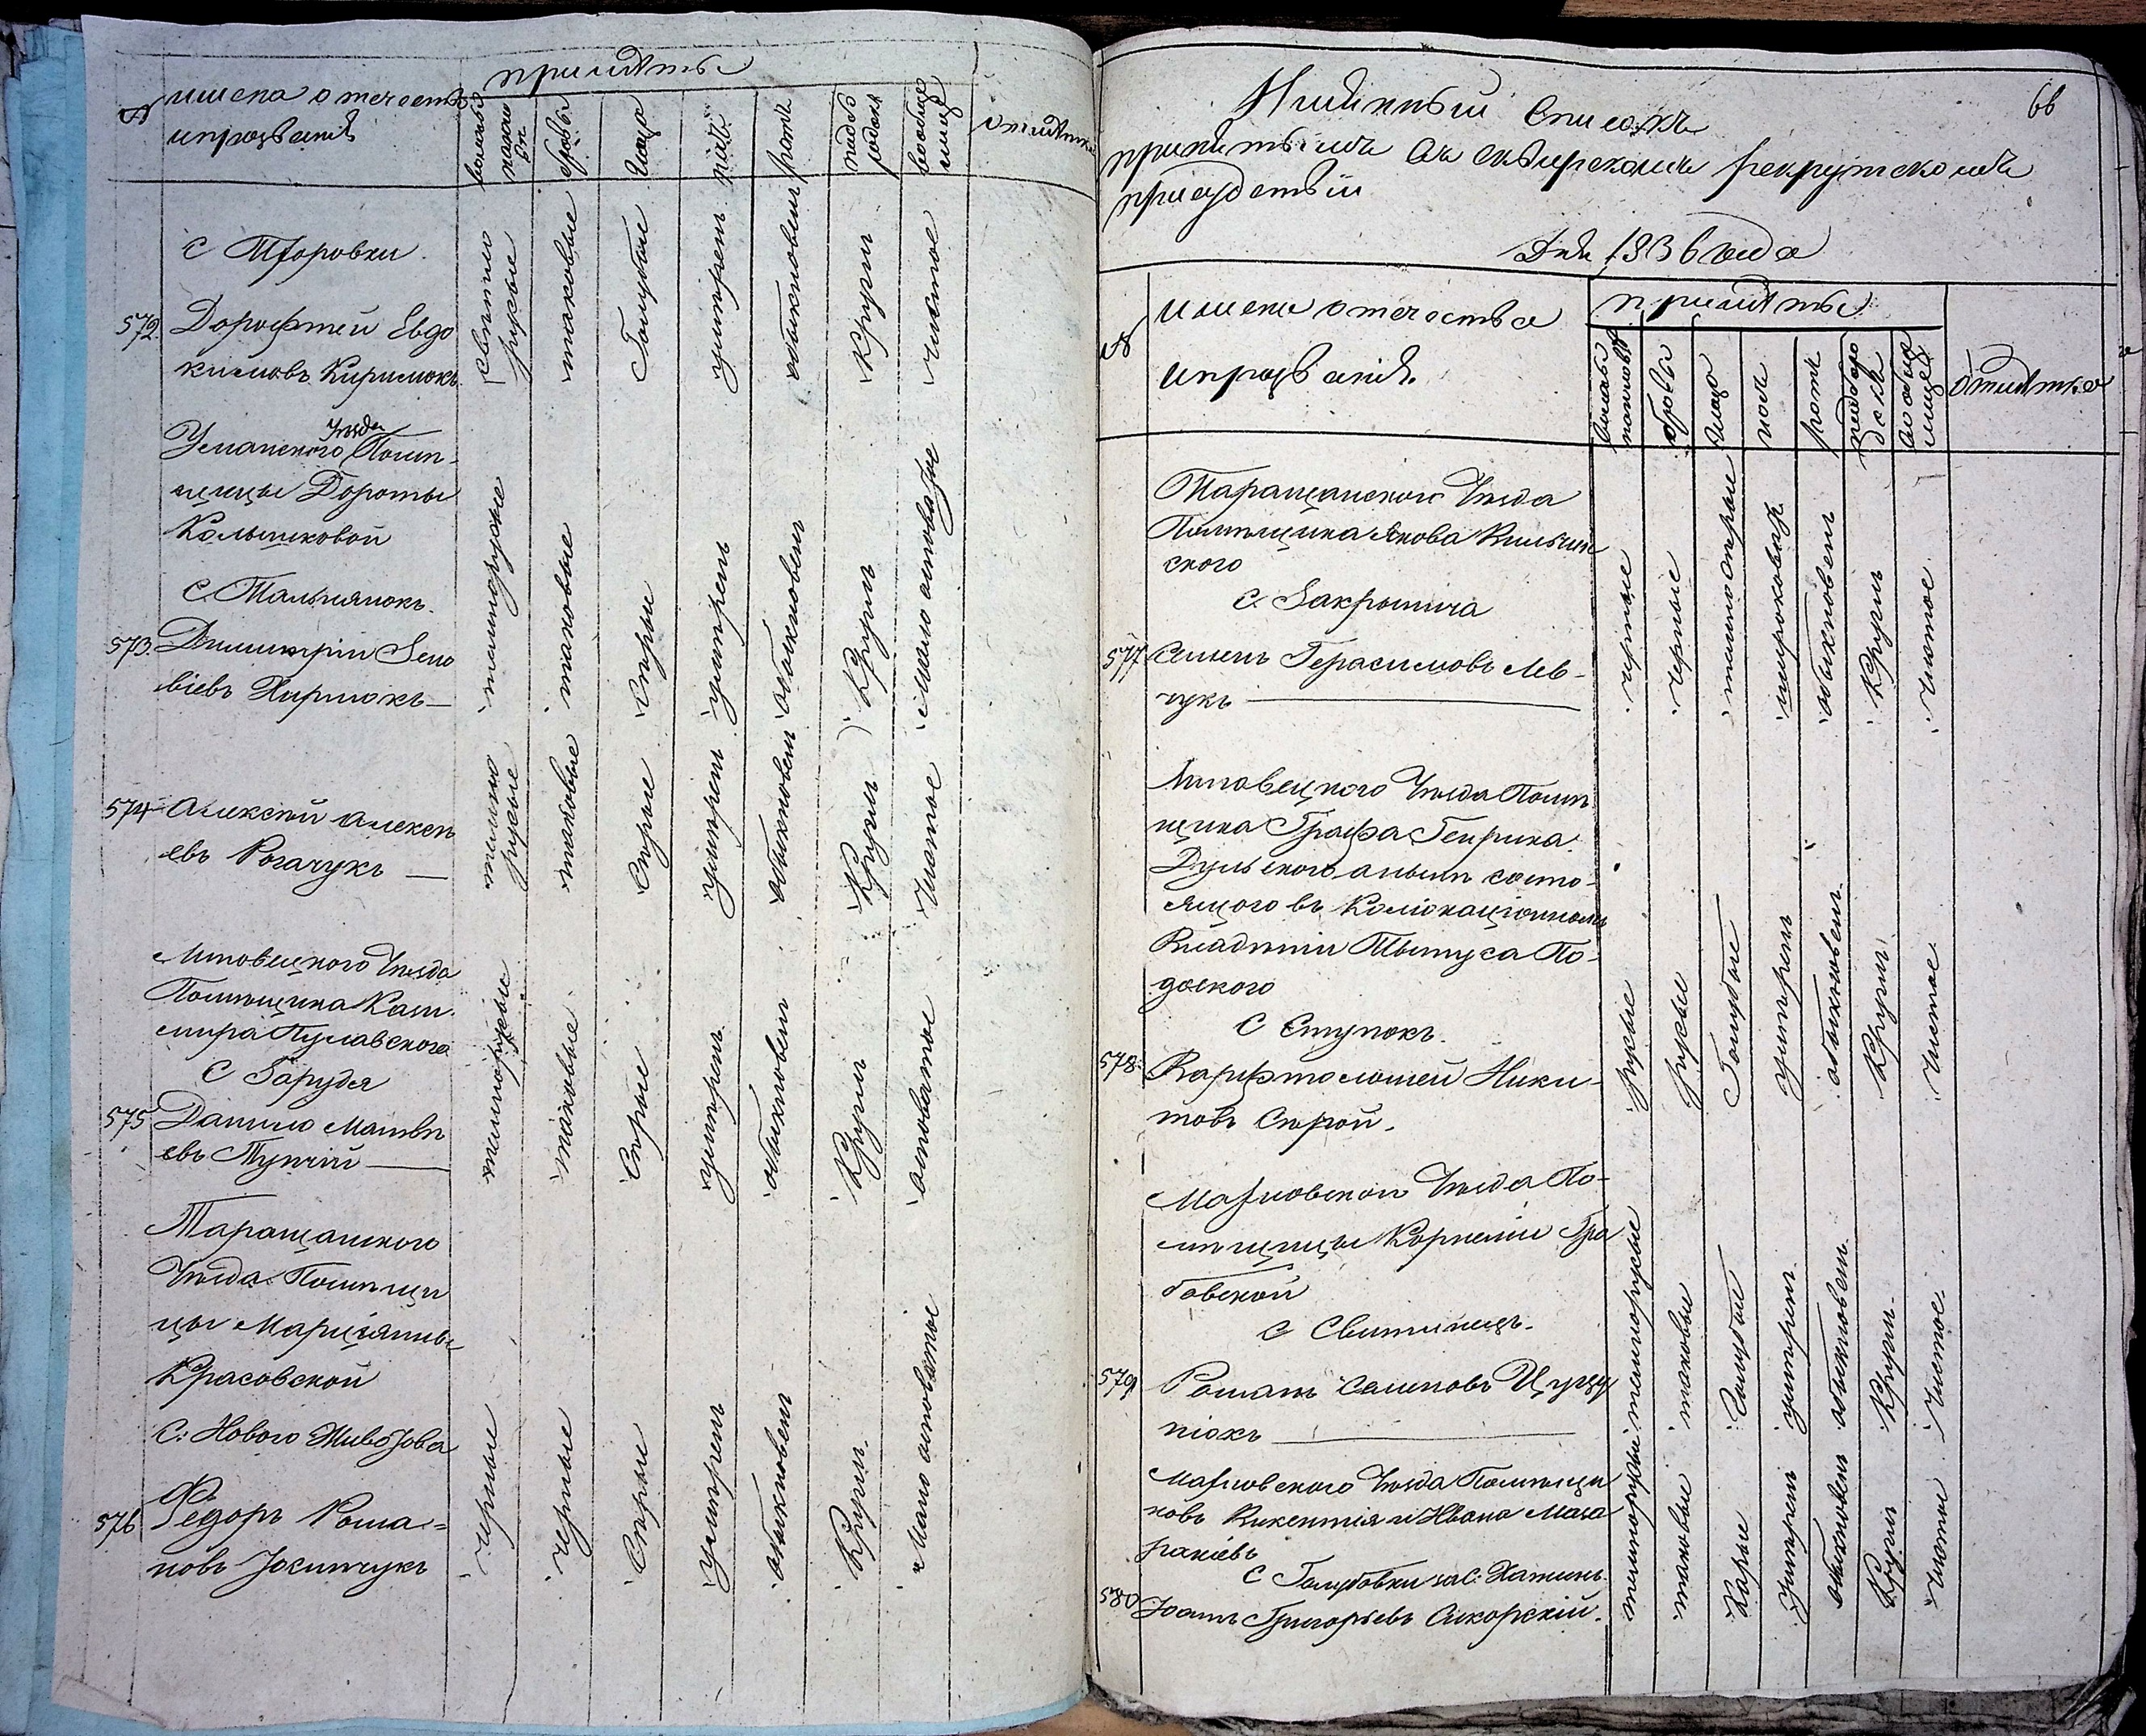 №
имена отечества
и прозванія
примѣты
волосы
брови
глаза
носъ
ротъ
подбородокъ
вообще лице
отмѣтка
572. Дорофтей Евдо
кимовъ Киримокъ.
свѣтло русые
таковые
Голубые
умѣренъ
обыкновенъ
Круглъ
Чистое
Уѣзда
Уманского Помѣ-
щицы Дороты
С. Тальнянокъ.
573. Дмитрій Зено
віевъ Кирнокъ
темнорусые
таковые
Сѣрые
умѣренъ
обыкновенъ
Круглъ
Мало осповатое
574 Алексѣй Алексѣ
евъ Рогачукъ
темно русые
таковые
Сѣрые
умѣренъ
обыкновенъ
Круглъ
Чистое
Липовецкого Уѣзда
Помѣщика Кази
мира Пулавского
575 Данило Матвѣ
евъ
темнорусые
таковые
Сѣрые
умѣренъ
обыкновенъ
Круглъ
осповатое
Таращанского
Уѣзда Помѣщи
цы Марціянны
Красовской
С: Нового Животова
576 Федоръ Рома=
новъ
Черные
Черные
Сѣрые
умѣренъ
обыкновенъ
Круглъ
Мало осповатое
66
Именный Списокъ
принятымъ въ сквирскомъ рекрутскомъ
присудствіи
Дня 1836 года
№
имена отечества
и прозванія.
примѣты
брови
глаза
носъ
ротъ
отмѣтка
Таращанского Уѣзда
Помѣщика Якова
ского
577 Семенъ Герасимовъ Лев-
чукъ
черные
черные
темносѣрые
широковар
обыкновенъ
Круглъ
Чистое
Липовецкого Уѣзда Помѣ
щика Графа Генрика
Дульского а нынѣ состо-
ящого въ Колокаціонномъ
Владѣніи Тытуса По-
доского
С Ступокъ.
578. Варфтоломей Ники-
товъ Сѣрой.
русые
русые
Голубые
умѣренъ
обыкновенъ
Круглъ
Чистое
Махновского Уѣзда По-
мѣщицы Корнеліи Гра
бовской
С Свитинецъ.
579 Романъ Семеновъ Цуцу
піокъ
темнорусые
таковы
Голубые
умѣренъ
обыкновенъ
Круглъ
Чистое
Махновского Уѣзда Помѣщи
ковъ Викентія и Ивана Маза
ракіевъ
С Голубовки
580 Іоанъ Григорьевъ Сикорскій.
темнорусые
таковые
Карые
умѣренъ
обыкновенъ
Круглъ
Чистое